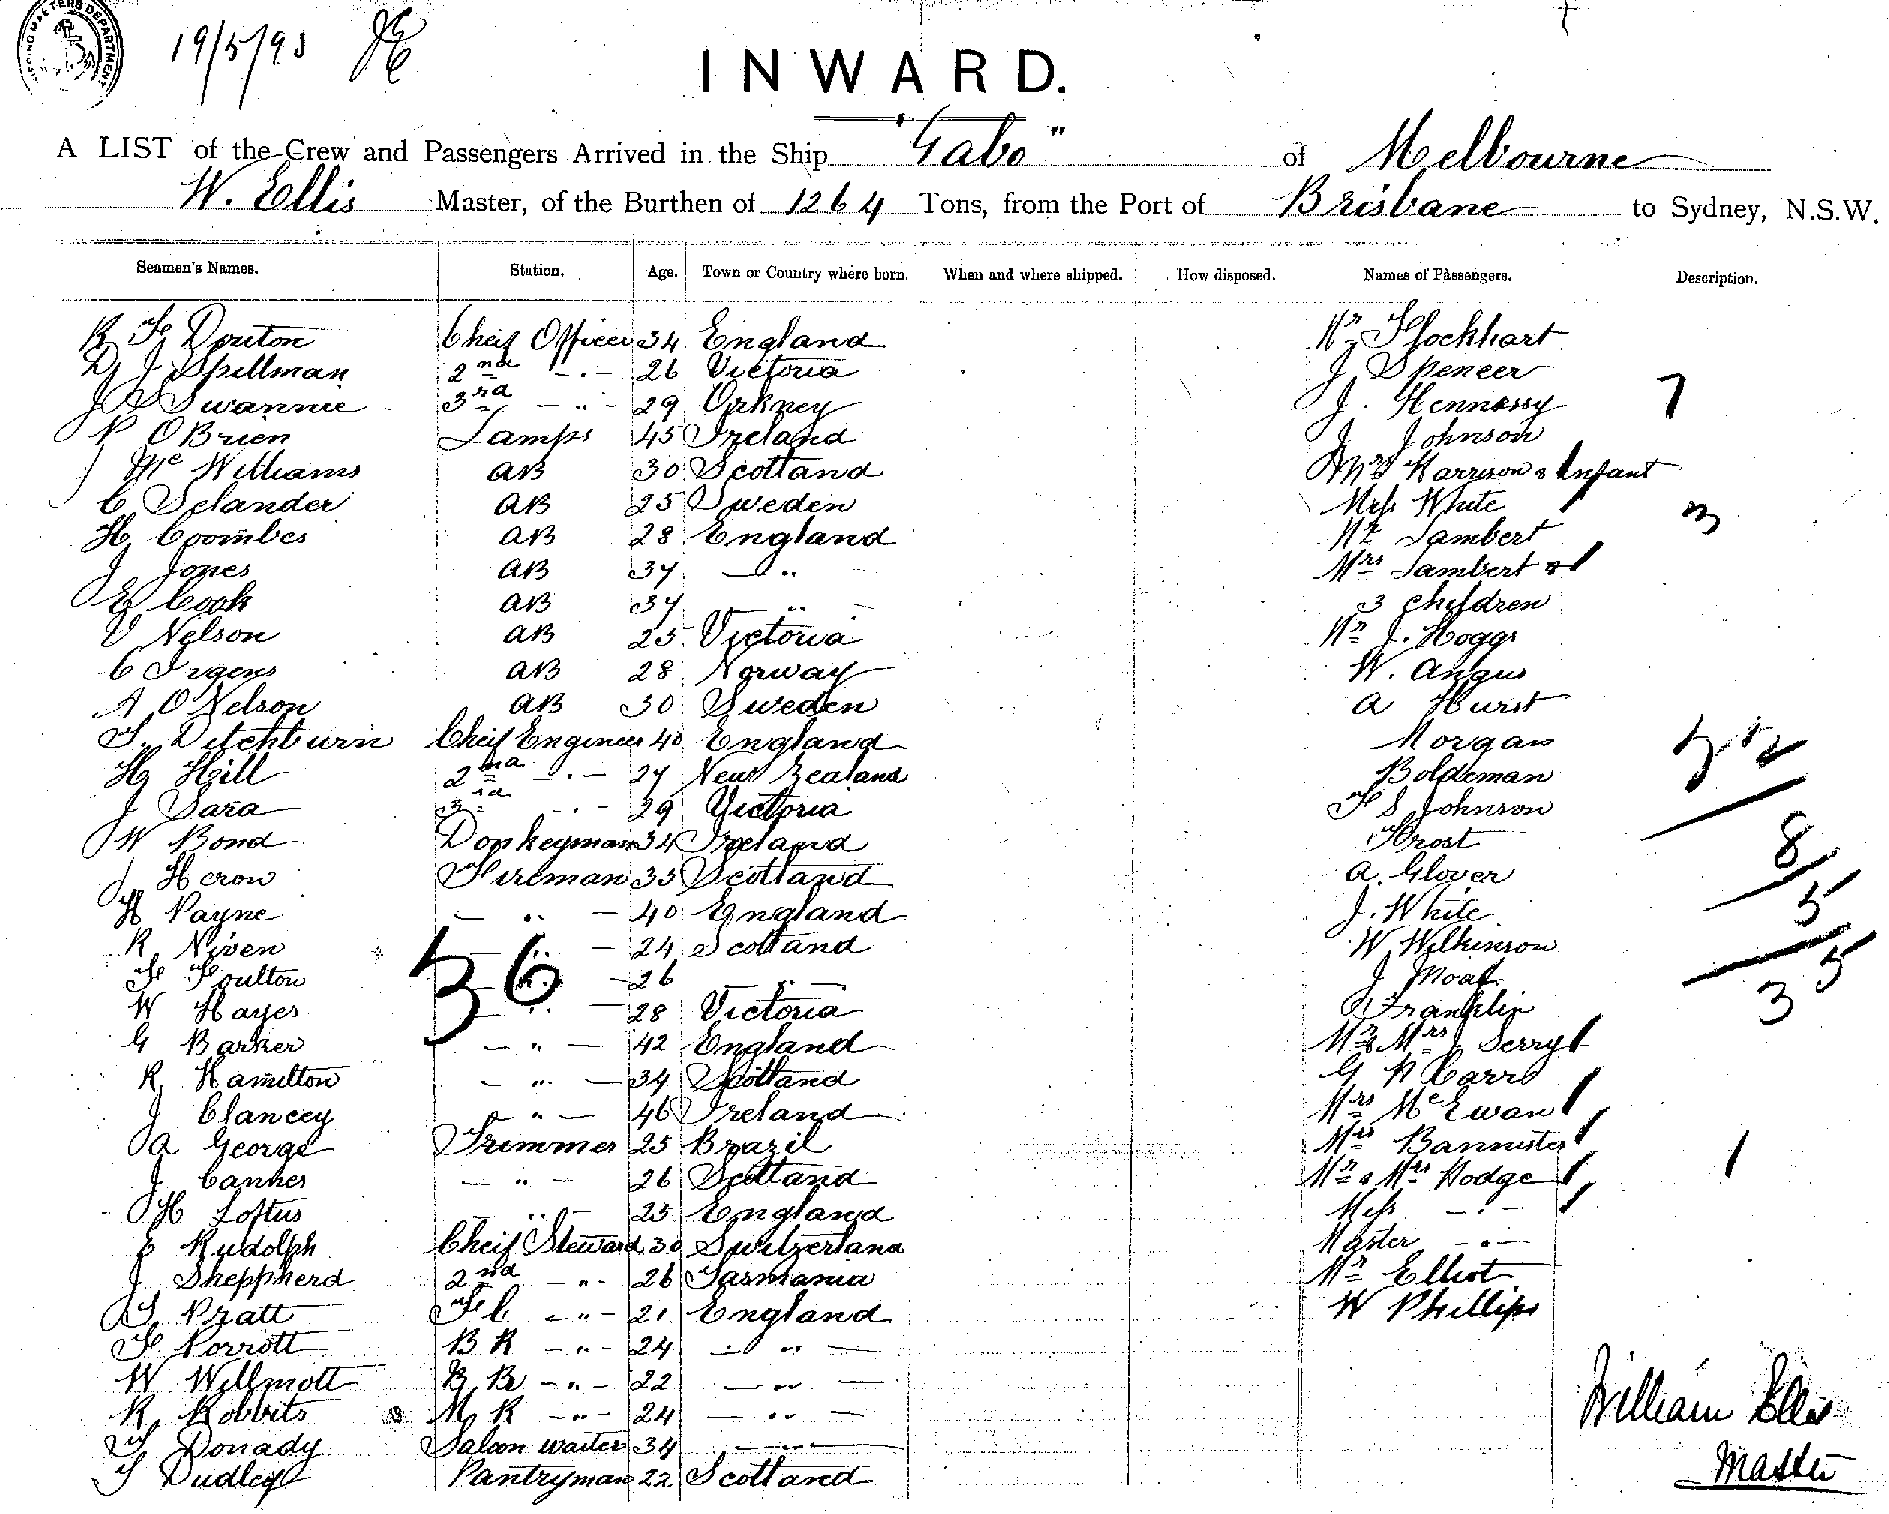 19/5/93
INWARD.
A LIST of the Crew and Passengers Arrived in the Ship "Gabo" of Melbourne
W. Ellis Master, of the Burthen of 1264 Tons, from the Port of Brisbane to Sydney, N.S.W.
Seamen's Names. Station. Age. Town or Country where born. When and where shipped. How disposed. Names of Passengers. Description.
R F Douton Cheif Officer 34 England Mr Flockhart
D J Spillman 2nd -"- 26 Victoria J Spencer
J S Swannie 3rd -"- 29 Orkney J. Hennessy 7
P O'Brien Lamps 45 Ireland J Johnson
J McWilliams AB 30 Scotland Mrs Harrison & Infant
C Selander AB 25 Sweden Miss White 3
H Coombes AB 28 England Mr Lambert
J Jones AB 37 -"- Mrs Lambert &
E Cook AB 37 " - 3 Children
V Nelson AB 25 Victoria Mr J. Hoggs
C Irgens AB 28 Norway W. Angus
A O Nelson AB 30 Sweden A Hurst
T Ditchburn Cheif Engineer 40 England Morgan
H Hill 2nd -"- 27 New Zealand Boldeman
J Sara 3rd -"- 29 Victoria F S Johnson
W Bond Donkeyman 34 Ireland Frost 8
J Heron Fireman 33 Scotland A. Glover
H Payne -"- 40 England J. White 5
R Niven -"- 24 Scotland W Wilkinson
F Foulton -"- 26 -"- J Moat 5
W Hayes -"- 28 Victoria Franklin 3
G Barker -"- 42 England Mr & Mrs J Serry
R Hamilton -"- 34 Scotland G P Carr
J Clancey -"- 46 Ireland Mrs McEwan
A George Trimmer 25 Brazil Mrs Bannister 1
J Cankes -"- 26 Scotland Mr & Mrs Hodge
H Loftus -"- 25 England Miss -"-
E Rudolph Cheif Steward 30 Switzerland Master -"-
J Sheppherd 2nd -"- 26 Tasmania Mr Elliot
T Pratt F C -"- 21 England W Phillips
F Porrott B R -"- 24 -"-
W Willmott B R -"- 22 -"-
R Robbits M R -"- 24 -"-
T Donady Saloon waiter 34 -"-
T Dudley Pantryman 22 Scotland
William Ellis
Master
36